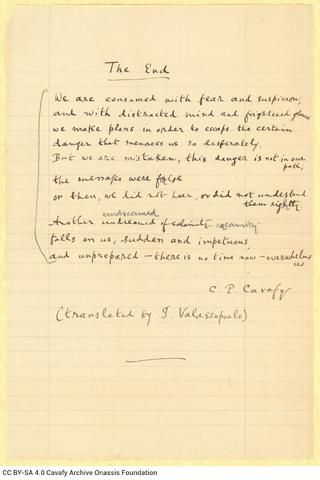 The End
We are consumed with fear and suspicion,
and with distracted mind and frightened glance
we make plans in order to escape the certain
danger that menaces us so desperately.
But we are mistaken, this danger is not in our
path;
the messages were false
or then, we did not hear, or did not understand
them rightly
undreamed
Another undreamed of calamity calamity
falls on us, sudden and impetuous,
and unprepared — there is no time now — overwhelms
us
C. P. Cavafy
(translated by G. Valassopoulo)
CC BY-SA 4.0 Cavafy Archive Onassis Foundation